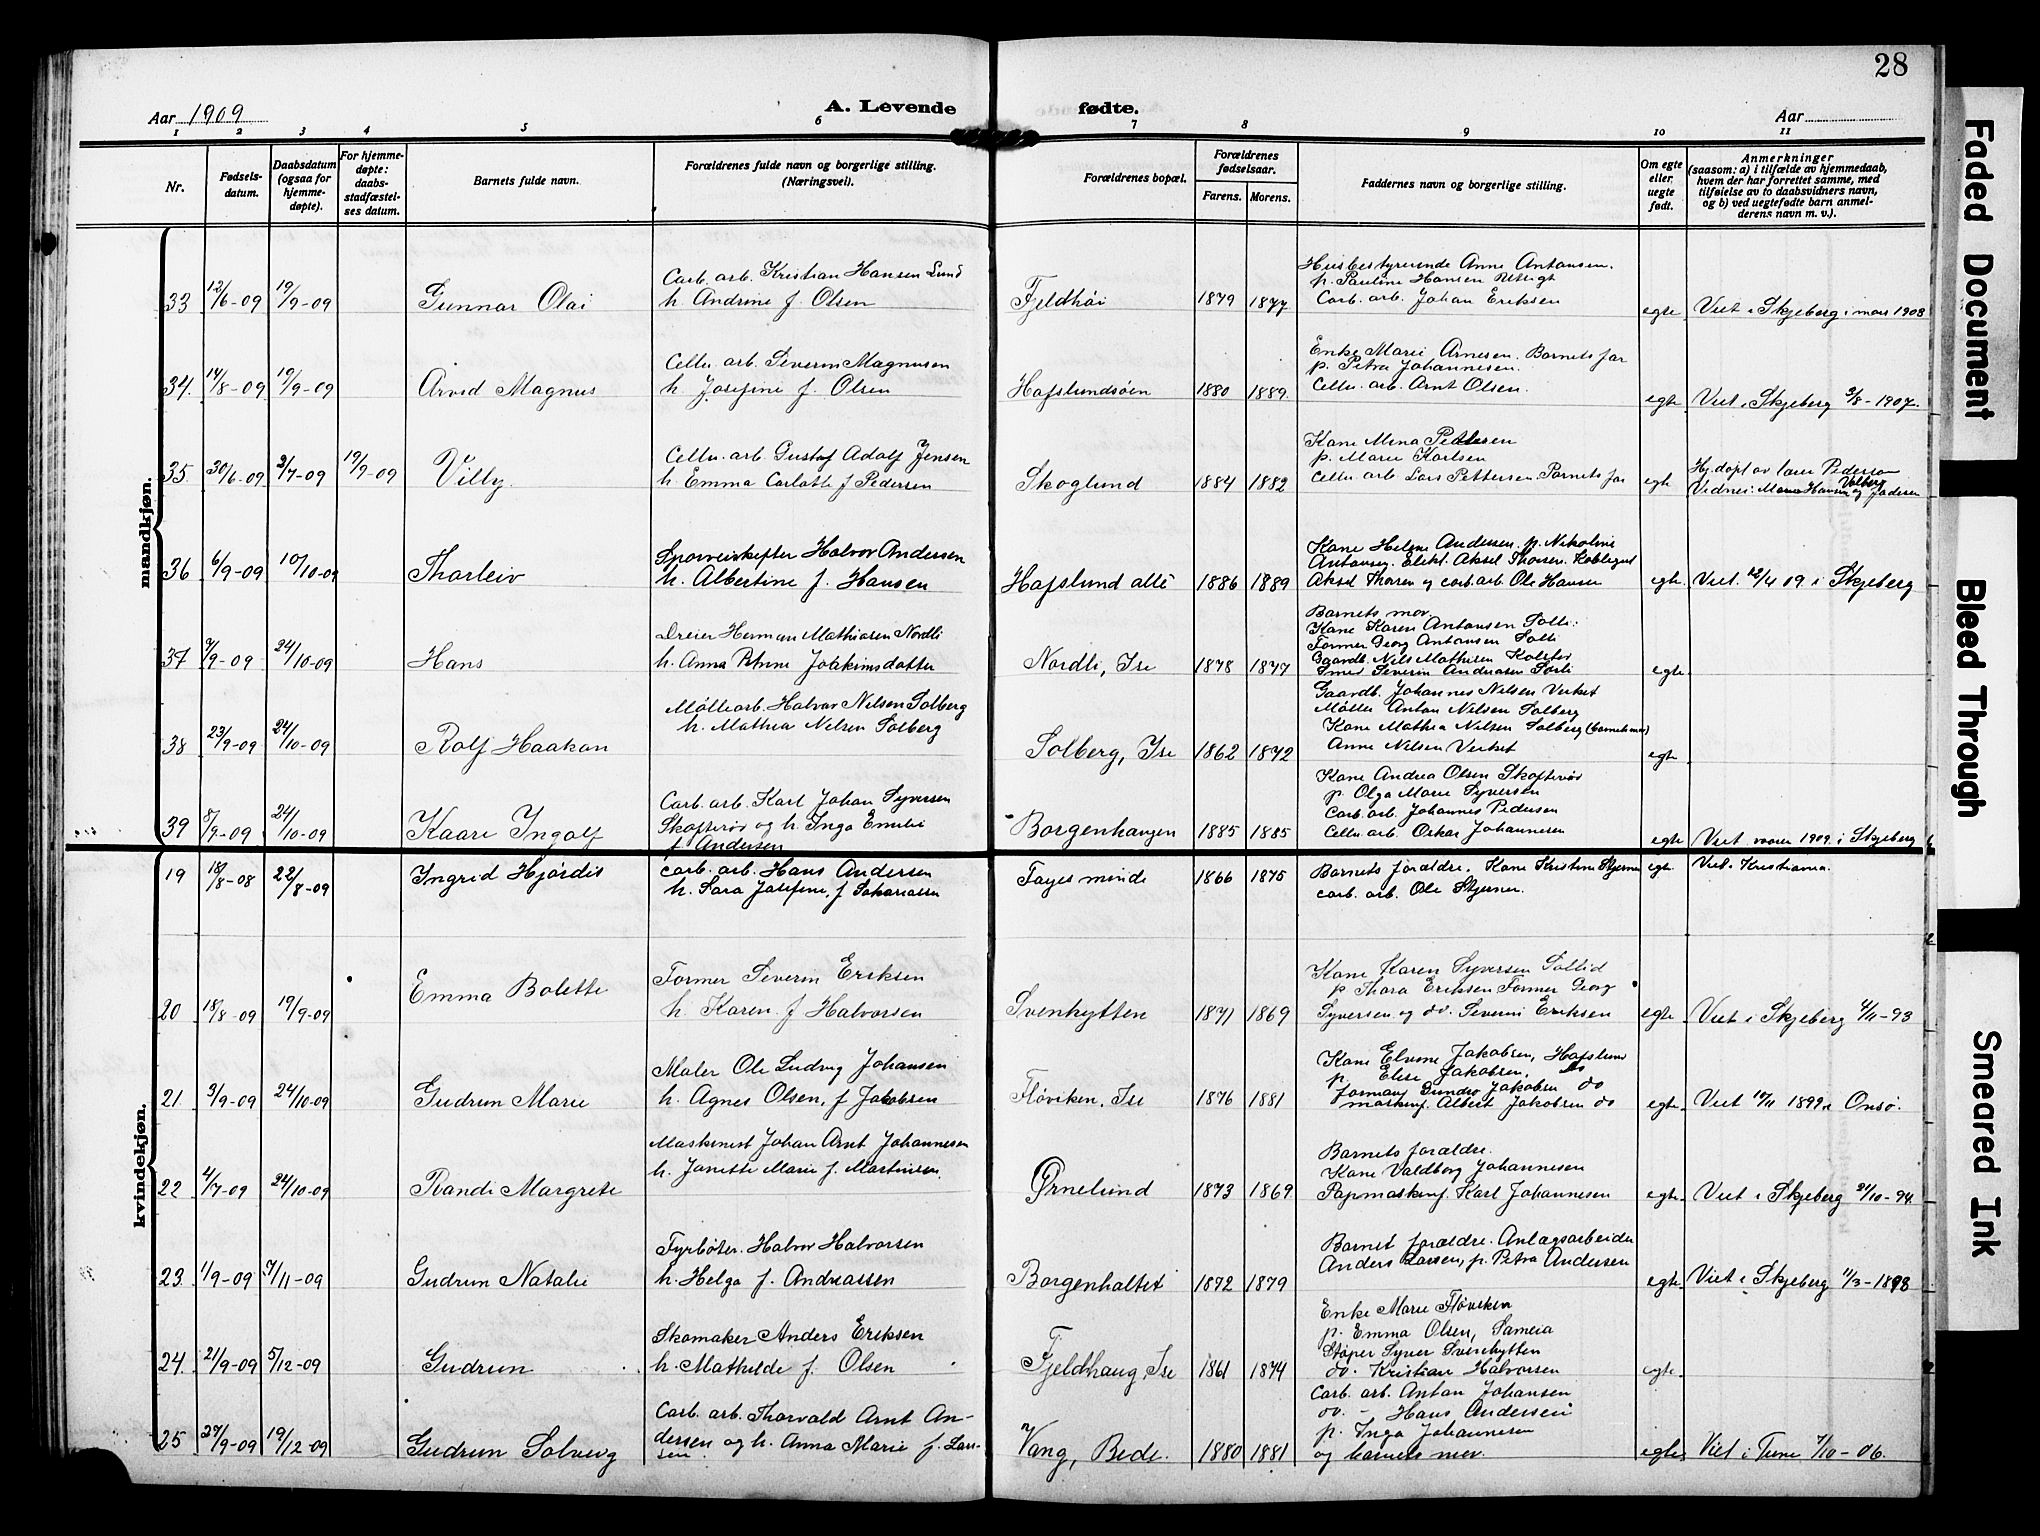 28
Aar 1909
A. Levende
fødte.
Aar
1 2 3 4 5 6 7 8 9 10 11
Nr.
Fødsels-
datum.
Daabsdatum
(ogsaa for
hjemme-
døpte).
For hjemme-
døpte:
daabs-
stadfæstel-
ses datum.
Barnets fulde navn.
Forældrenes fulde navn og borgerlige stilling.
(Næringsvei).
Forældrenes bopæl.
Forældrenes
fødselsaar.
Farens. Morens.
Faddernes navn og borgerlige stilling.
Om egte
eller
uegte
født.
Anmerkninger
(saasom: a) i tilfælde av hjemmedaab,
hvem der har forrettet samme, med
tilføielse av to daabsvidners navn,
og b) ved uegtefødte barn anmel-
derens navn m. v.).
mandkjøn.
33 12/6-09 19/9-09 Gunnar Olai
Carb. arb. Kristian Hansen Lund
h. Andrine f. Olsen
Fjeldhøi 1879 1877
Husbestyrerinde Anne Antonsen.
p. Pauline Hansen
Carb. arb. Johan Eriksen
egte Viet i Skjeberg i mars 1908
34. 14/8-09 19/9-09 Arvid Magnus
Cellu. arb. Severin Magnusen
h. Josefine f. Olsen
Hafslundsøen 1880 1889.
Enke Marie Arnesen. Barnets far
p. Petra Johannesen.
Cellu. arb. Arnt Olsen.
egte Viet i Skjeberg 3/8-1907.
35. 30/6-09 3/7-09 19/9-09 Villy.
Cellu. arb. Gustaf Adolf Jensen
h. Emma Carlotte f Pedersen
Skoglund 1884 1882
Kone Mina Pettersen
p. Marie Karlsen
Cellu. arb Lars Pettersen. Barnets far
egte Hj. døpt av lærer Pederson
Vidner: Hansen og Valborg
36 6/9-09 10/10-09 Thorleiv
Sporveiskefter Halvor Andersen
h. Albertine f. Hansen
Hafslund allé 1886 1889
Kone Helene Andersen. p. Nikoline
Antonsen. Elekt. Aksel Thoresen.
Aksel Thoresen og carb. arb. Ole Hansen
egte. Viet. 12/4 09. i Skjeberg
37 7/9-09 24/10-09 Hans
Dreier Herman Mathiasen Nordli
h. Anna Petrine Joakimsdatter
Nordli, Ise 1878 1877
Barnets mor.
Kone Karen Antonsen Solli.
Former Georg Antonsen Solli
Gaardb. Nils Mathisen Kolstad
Smed Severin Andreasen Sørli
egte
38 23/9-09 24/10-09 Rolf Haakon
Møllearb. Halvor Nilsen Solberg
h. Mathea Nilsen Solberg
Solberg, Ise 1862 1872
Gaardb. Johannes Nilsen Verket
Møller Anton Nilsen Solberg
Kone Mathea Nilsen Solberg (barnets mor)
Anne Nilsen Verket
egte
39 8/9-09 24/10-09 Kaare Ingolf
Carb. arb. Karl Johan Syversen
Skofterød og h. Inga Emelie
f Andersen
Borgenhaugen 1885 1885
Kone Andrea Olsen Skofterød
p. Olga Marie Syversen
Carb. arb. Johannes Pedersen
Cellu. arb. Oskar Johannesen
egte Viet vaaren 1909. i Skjeberg
kvindekjøn.
19 18/8-08 22/8-09 Ingrid Hjørdis
Carb. arb. Hans Andersen
h. Sara Josefine, f Sakariasen
Fayes minde 1866 1875
Barnets forældre. Kone Kristine Stjerner
carb. arb. Ole Stjerner.
egte. Viet i Kristiania.
20 18/8-09 19/9-09 Emma Bolette
Former Severin Eriksen
h. Karen f Halvorsen
Svenhytten 1871 1869
Kone Karen Syversen Sollid
p. Thora Eriksen Former Georg
Syversen og do. Severin Eriksen
egte Viet i Skjeberg 4/11-93
21 3/9-09 24/10-09 Gudrun Marie
Maler Ole Ludvig Johansen
h. Agnes Olsen, f Jakobsen
Fløviken, Ise 1876 1881
Kone Elvine Jakobsen, Hafslund
p. Elise Jakobsen, do
formand Gunder Jakobsen do
maskinf. Albert Jakobsen do
egte. Viet 10/11 1899 i Onsø.
22 4/7-09 24/10-09 Randi Margrete
Maskinist Johan Arnt Johannesen
h. Janette Marie f. Martinsen.
Ørnelund 1873 1869
Barnets forældre.
Kone Valdborg Johannesen
Papmaskinf. Karl Johannesen
egte. Viet i Skjeberg 21/10-94.
23 1/9-09 7/11-09 Gudrun Natalie
Fyrbøter. Halvor Halvorsen
h. Helga f. Andreassen
Borgenholtet 1872 1879
Barnets forældre. Anlægsarbeider
Anders Larsen, p. Petra Andersen
egte. Viet i Skjeberg 11/3-1898
24. 21/9-09 5/12-09 Gudrun
Skomaker Anders Eriksen
h. Mathilde f. Olsen
Fjeldhaug, Ise 1861 1874
Enke Marie Fløviken
p. Emma Olsen, Sameia
Støper Syver Svenhytten
do. Kristian Halvorsen
egte.
25 27/9-09 19/12-09 Gudrun Solveig
Carb. arb. Thorvald Arnt An-
dersen og h. Anna Marie f. Lar-
sen.
Vang, Bede. 1880 1881
Carb. arb. Anton Johansen
do. - Hans Andersen
p. Inga Johannesen
og barnets mor.
egte. Viet i Tune 7/10-06.
Faded Document
Bleed Through
Smeared Ink